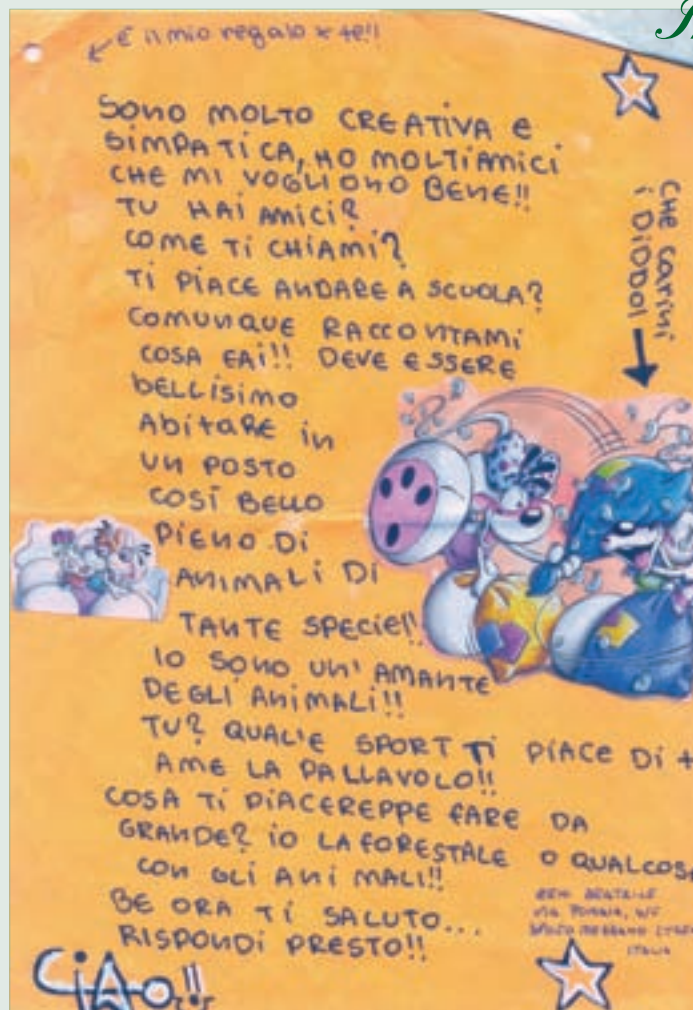 È il mio regalo x te!!
SONO MOLTO CREATIVA E
SIMPATICA, HO MOLTI AMICI
CHE MI VOGLIONO BENE!!
TU HAI AMICI?
COME TI CHIAMI?
TI PIACE ANDARE A SCUOLA?
COMUNQUE RACCONTAMI
COSA FAI!! DEVE ESSERE
BELLISIMO
ABITARE IN
UN POSTO
COSÌ BELLO
PIENO DI
ANIMALI DI
TANTE SPECIE!!
IO SONO UN'AMANTE
DEGLI ANIMALI!!
TU? QUAL'E SPORT TI PIACE DI +
A ME LA PALLAVOLO!!
COSA TI PIACEREPPE FARE DA
GRANDE? IO LA FORESTALE O QUALCOSA
CON GLI ANIMALI!!
BE ORA TI SALUTO...
RISPONDI PRESTO!!
CIAO!!
CHE CARINI
I DIDDOL
BEATRICE
VIA
ITALIA